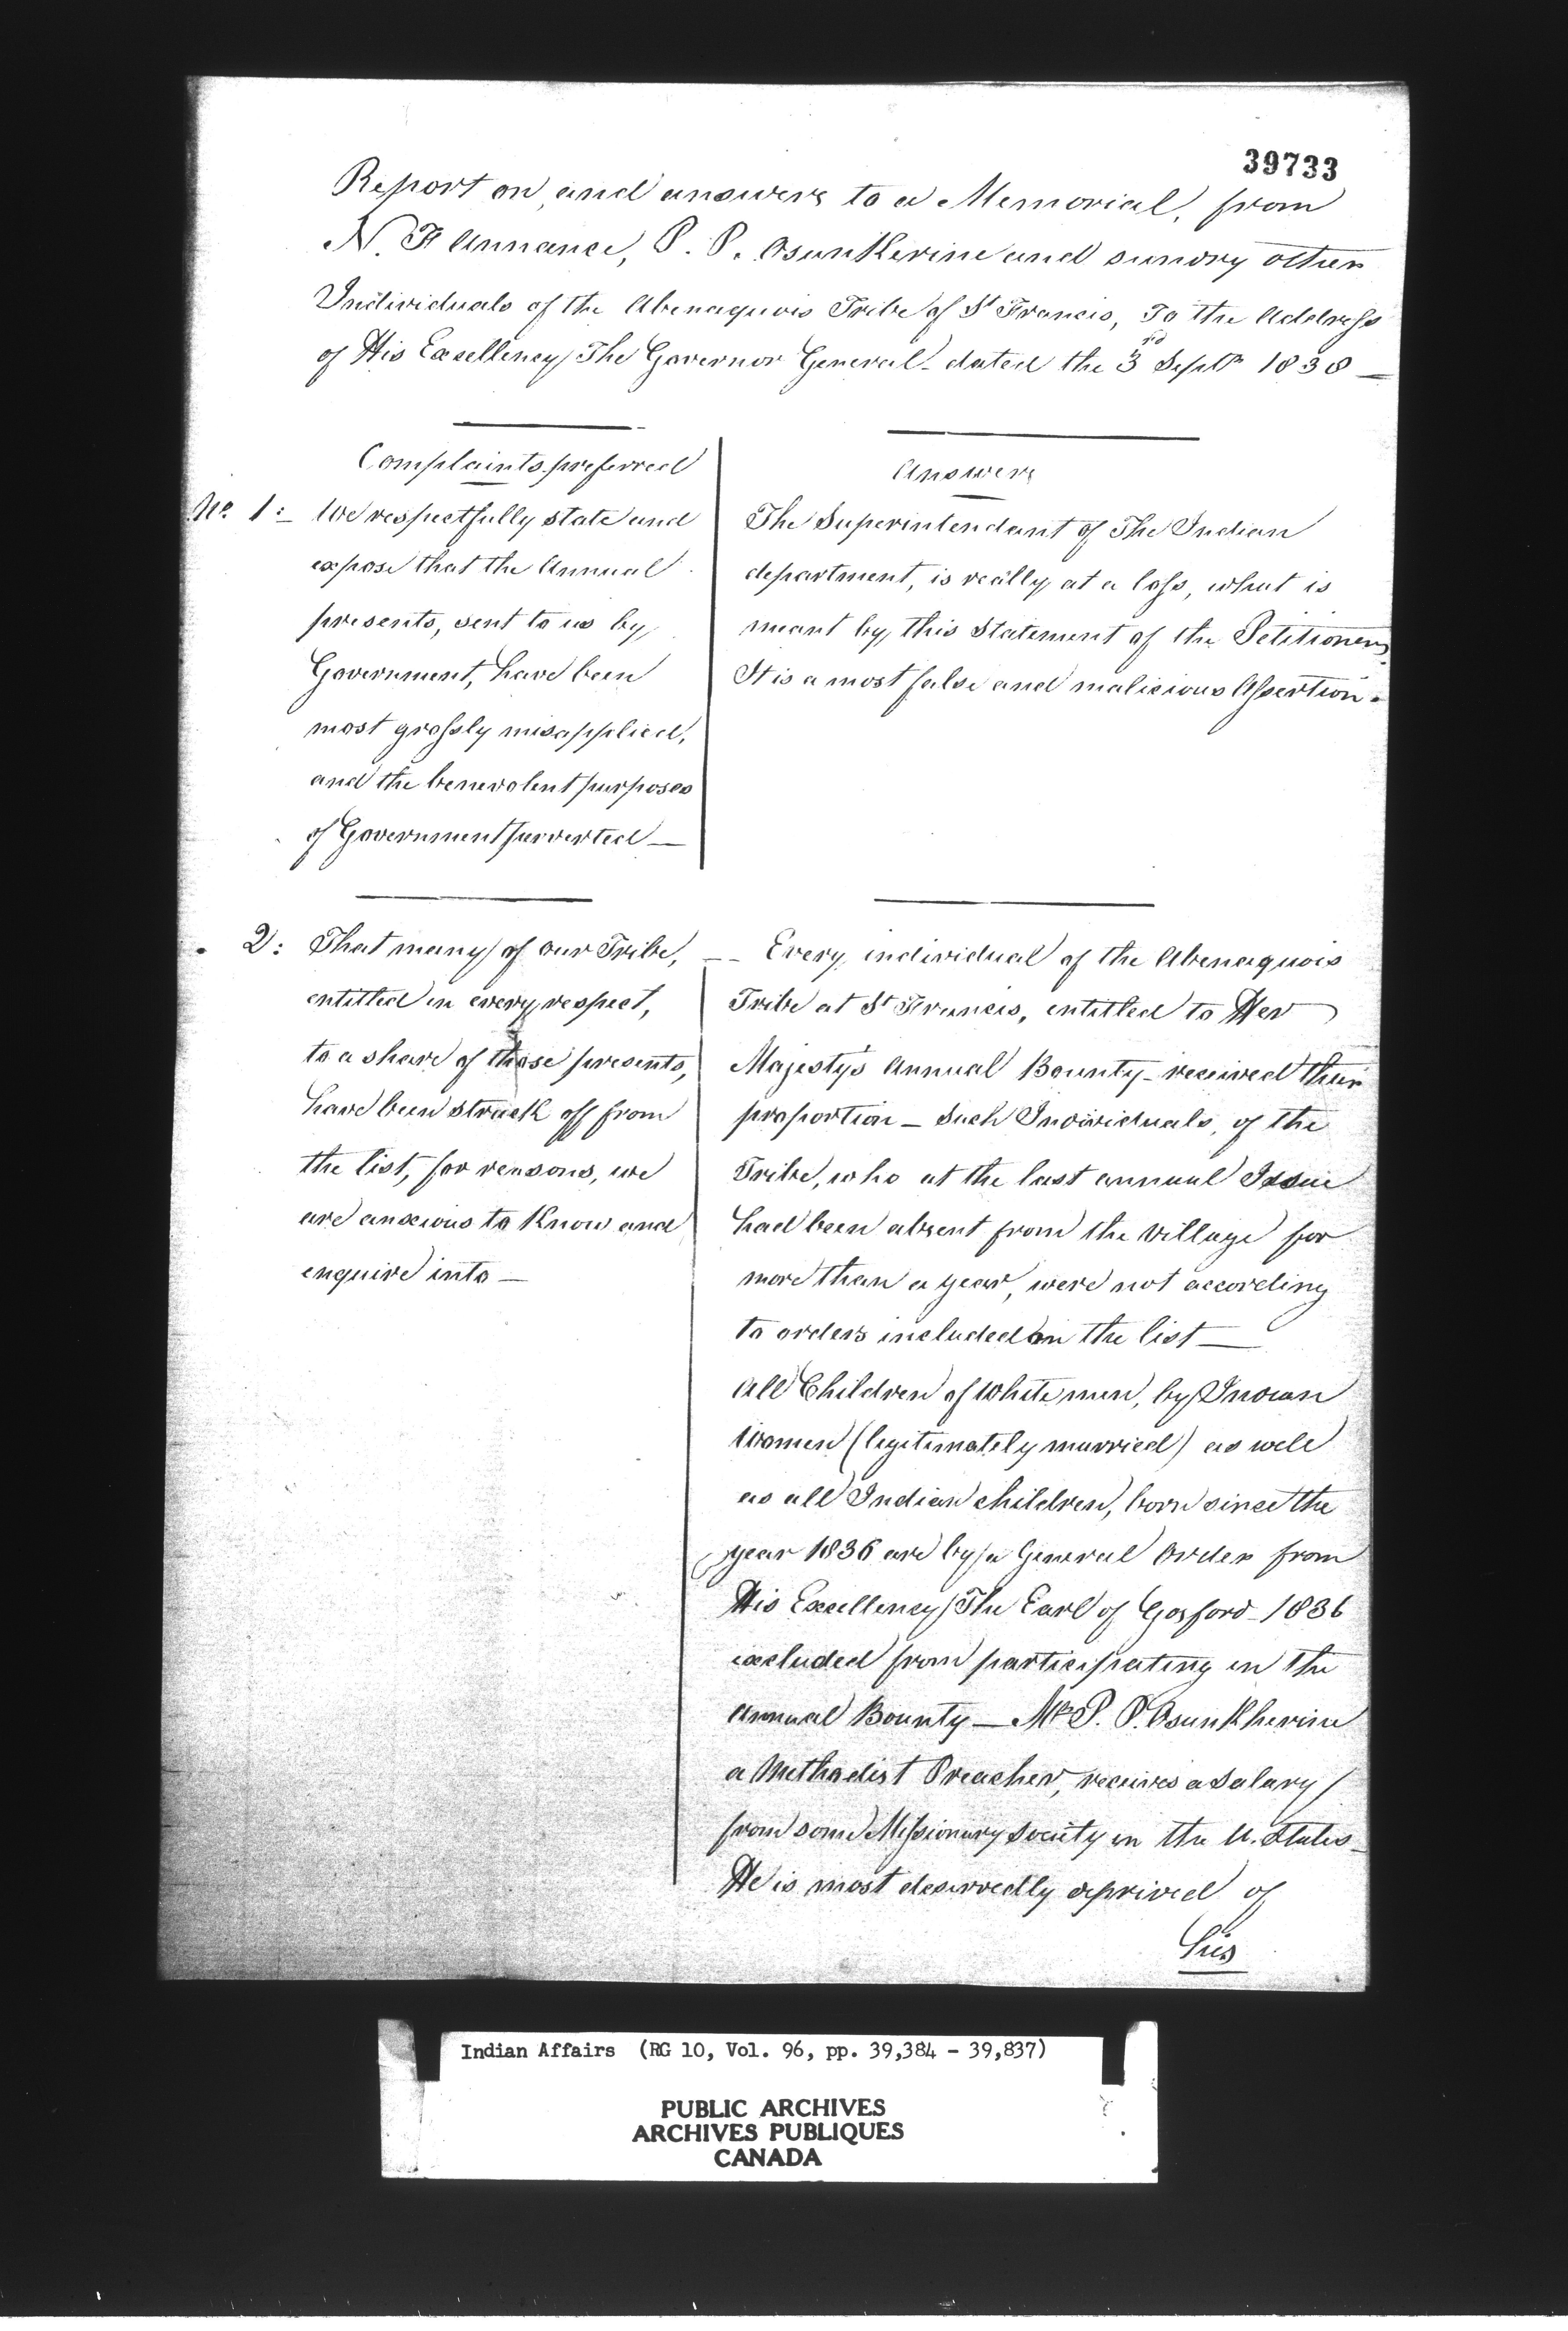 39733
Report on, and answers to a Memorial, from
N. F Annance, P. P. Osunkerine and sundry other
Individuals of the Abenaquois Tribe of St Francis, To the Address
of His Excellency The Governor General - dated the 3rd Septr 1838 —
Complaints preferred
No. 1:- We respectfully state and
expose that the Annual
presents, sent to us by
Government, have been
most grossly misapplied,
and the benevolent purposes
of Government perverted —
Answers
The Superintendant of The Indian
department, is really at a loss, what is
meant by this Statement of the Petitioners.
It is a most false and malicious Assertion.
2: That many of our Tribe,
entitled in every respect,
to a share of those presents,
have been struck off from
the list, for reasons, we
are anxious to Know and
enquire into —
-- Every individual of the Abenaquois
Tribe at St Francis, entitled to Her
Majesty's Annual Bounty - received their
proportion - Such Individuals, of the
Tribe, who at the last annual Issue
had been absent from the Village for
more than a year, were not according
to orders included in the list —
All Children of White men, by Indian
Women (legitimately married) as well
as all Indian children, born since the
year 1836 are by a General Order from
His Excellency The Earl of Gosford - 1836
excluded from participating in the
Annual Bounty — Mr P. P. Osunkherine
a Methodist Preacher, receives a Salary
from some Missionary Society in the U. States -
He is most deservedly deprived of
his
Indian Affairs (RG 10, Vol. 96, pp. 39,384 - 39,837)
PUBLIC ARCHIVES
ARCHIVES PUBLIQUES
CANADA